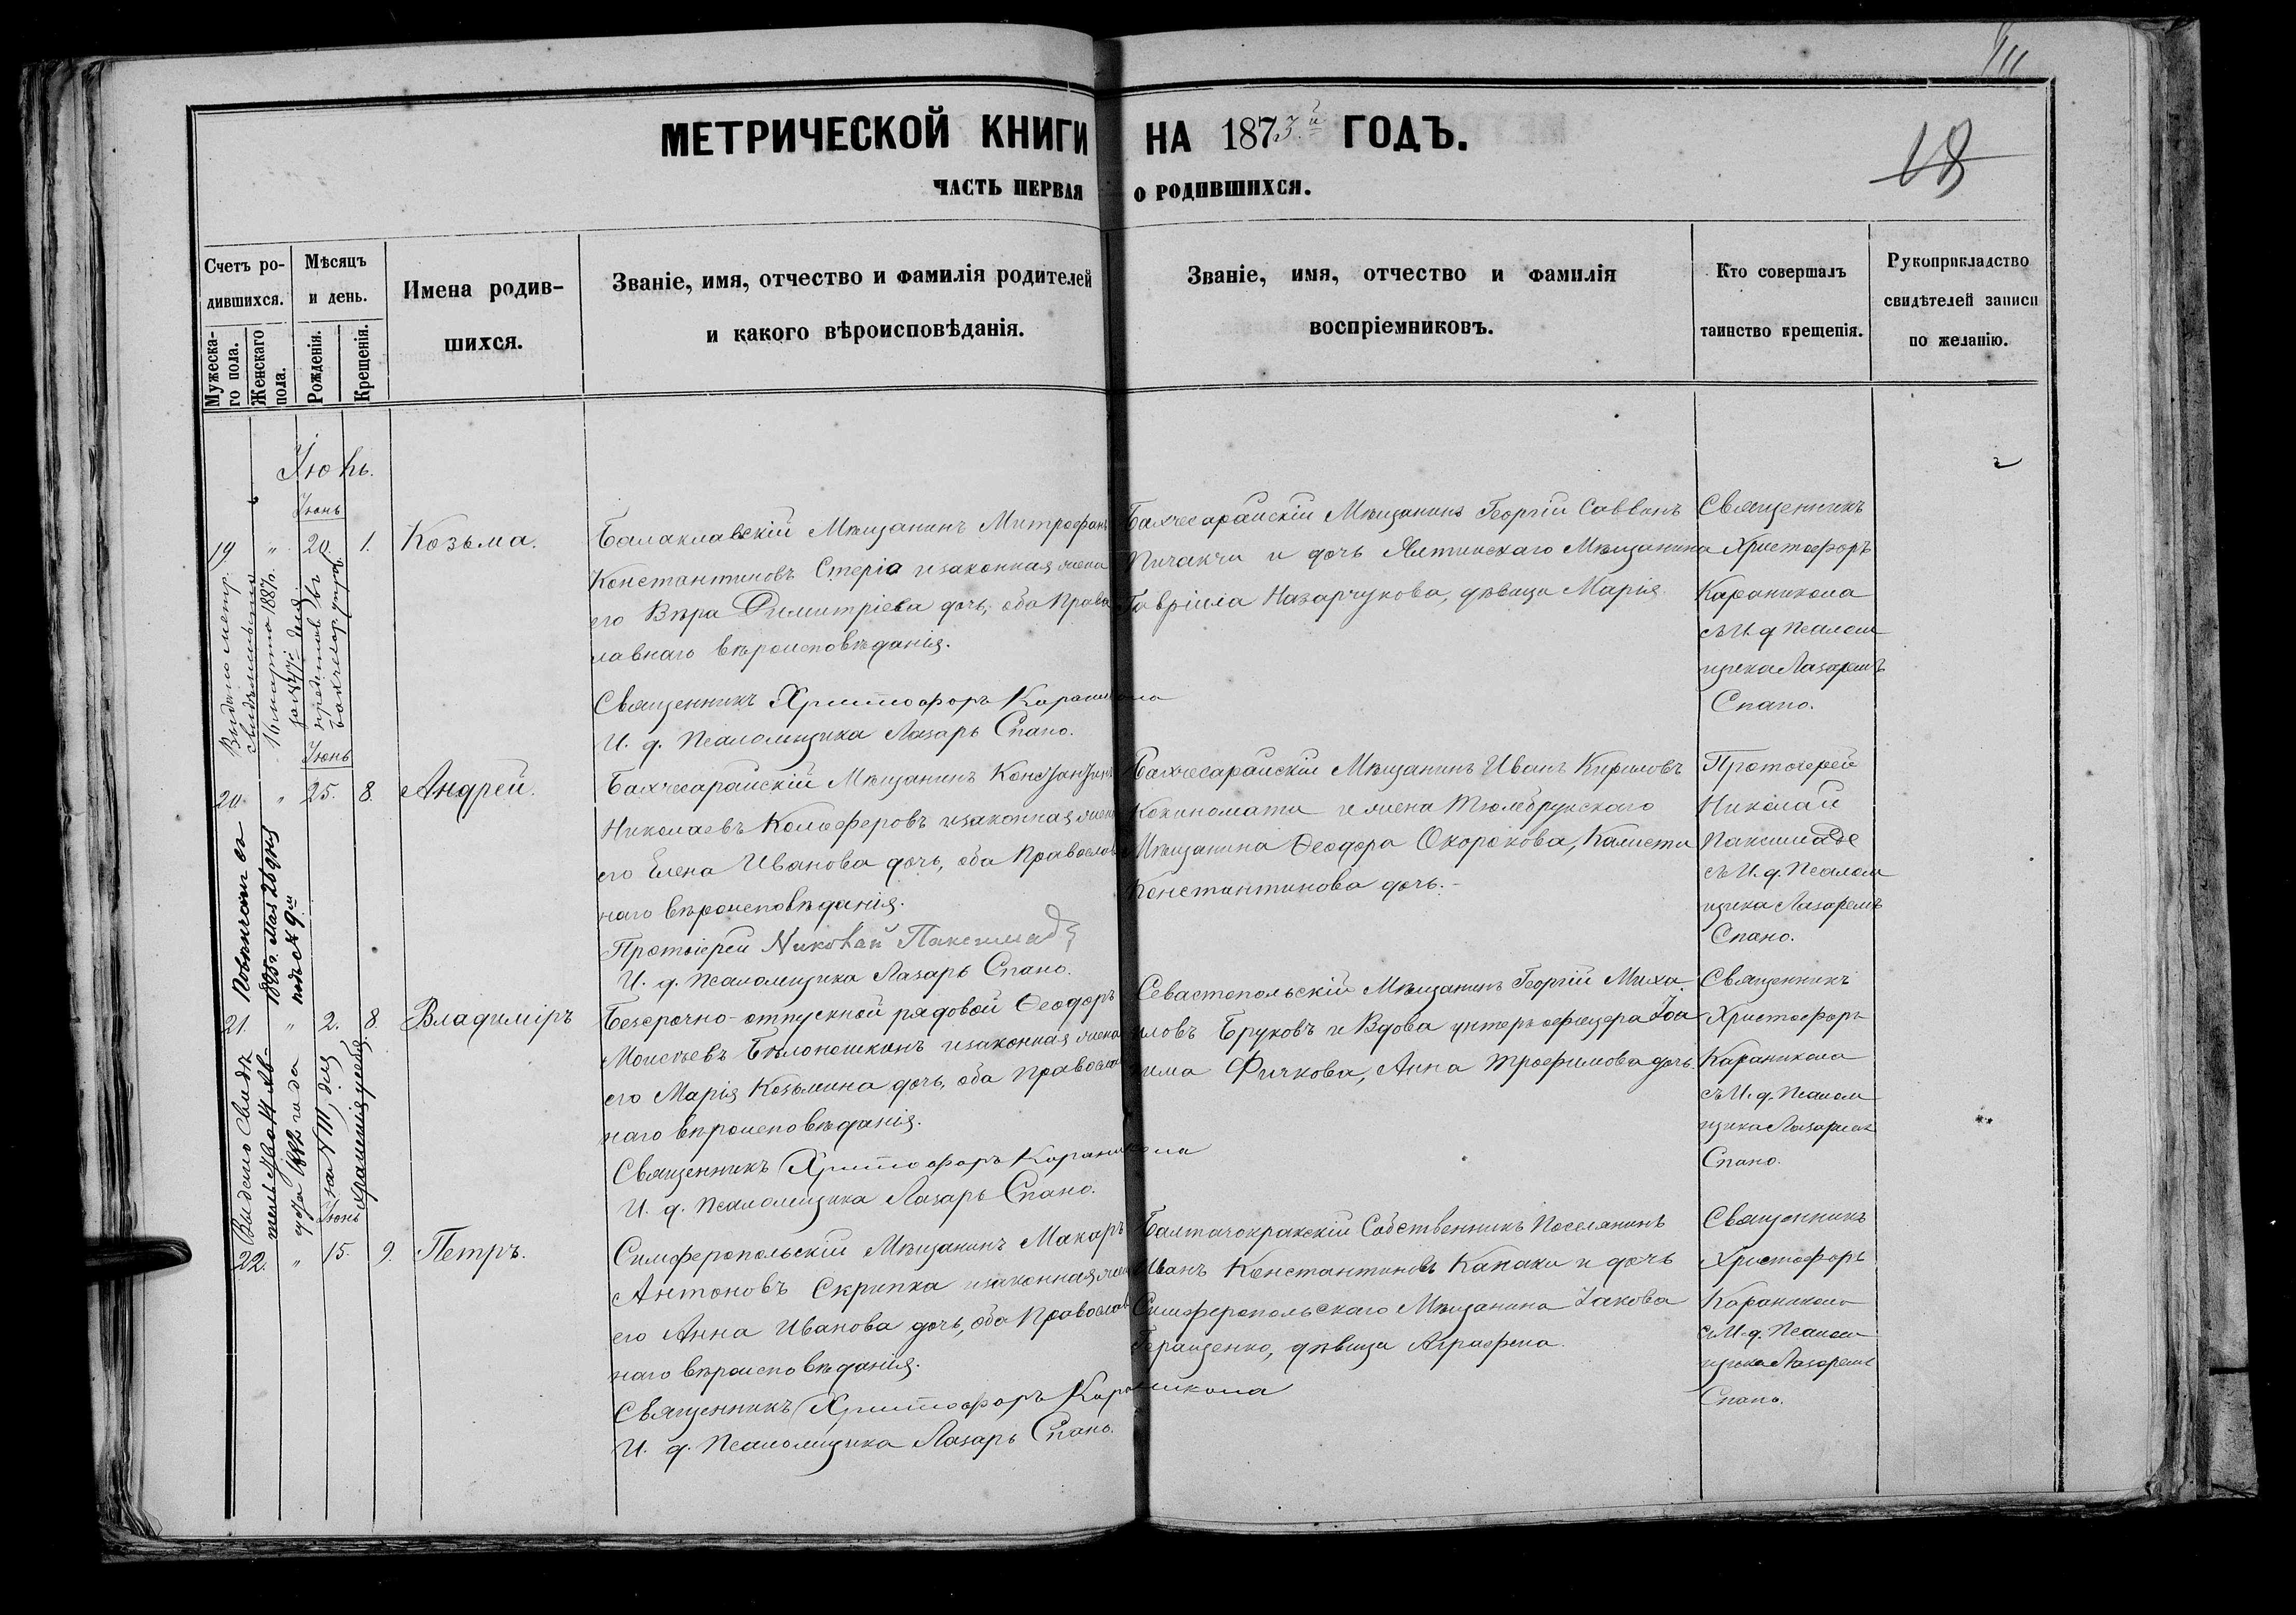 МЕТРИЧЕСКОЙ КНИГИ НА 1873.й ГОДЪ.
ЧАСТЬ ПЕРВАЯ О РОДИВШИХСЯ.
18
Счетъ ро-
дившихся.
Мужеска-
го пола.
Женскаго
пола.
Мѣсяцъ
и день.
Рожденія.
Крещенія.
Имена родив-
шихся.
Званіе, имя, отчество и фамилія родителей
и какого вѣроисповѣданія.
Званіе, имя, отчество и фамилія
воспріемниковъ.
Кто совершалъ
таинство крещенія.
Рукоприкладство
свидѣтелей записи
по желанію.
Іюнь.
Іюнь
19 " 20. 1. Козьма.
Балаклавскій Мѣщанинъ Митрофанъ
Константиновъ Стеріо и законная жена
его Вѣра Димитріева дочь, оба Право
лавнаго вѣроисповѣданія.
Священникъ Христофоръ Караникола
И. д. Псаломщика Лазарь Спано.
Бахчесарайскій Мѣщанинъ Георгій Саввинъ
Пичакчи и дочь Ялтинскаго Мѣщанина
Гавріила Назарчукова, дѣвица Марія.
Священникъ
Христофоръ
Караникола
съ И. д. Псалом
щика Лазаремъ
Спано.
Выдано метр.
свидѣтельство
16 марта 1887 г.
Іюнь
20 " 25. 8. Андрей.
Бахчесарайскій Мѣщанинъ Константинъ
Николаевъ Колоферовъ и законная жена
его Елена Иванова дочь, оба Православ
наго вѣроисповѣданія.
Протоіерей Николай Паксимаде
И. д. Псаломщика Лазарь Спано.
Бахчесарайскій Мѣщанинъ Иванъ Кириловъ
Кокиномати и жена
Мѣщанина Ѳеодора Окорокова, Калиста
Константинова дочь.-
Протоіерей
Николай
Паксимаде
съ И. д. Псалом
щика Лазаремъ
Спано.
1885 г. Мая 20 дня
21. " 2. 8. Владиміръ
Безсрочно-отпускной рядовой Ѳеодоръ
Моисеевъ Бѣлоножкинъ и законная жена
его Марія Козьмина дочь, оба Православ
наго вѣроисповѣданія.
Священникъ Христофоръ Караникола
И. д. Псаломщика Лазарь Спано.
Севастопольскій Мѣщанинъ Георгій Миха
иловъ Бруковъ и Вдова унтеръ офицера Іоа
кима Фичкова, Анна Трофимова дочь.
Священникъ
Христофоръ
Караникола
съ И. д. Псалом
щика Лазаремъ
Спано.
Выдано Свидѣ
тельство
Іюнь
22. " 15. 9. Петръ.
Симферопольскій Мѣщанинъ Макаръ
Антоновъ Скрипка и законная жена
его Анна Иванова дочь, оба Православ
наго вѣроисповѣданія.
Священникъ Христофоръ Караникола
И. д. Псаломщика Лазарь Спано.
Балтачокракскій Собственникъ Поселянинъ
Иванъ Константиновъ Капаки и дочь
Симферопольскаго Мѣщанина Іакова
Геращенко, дѣвица Аграфена.
Священникъ
Христофоръ
Караникола
съ И. д. Псалом
щика Лазаремъ
Спано.